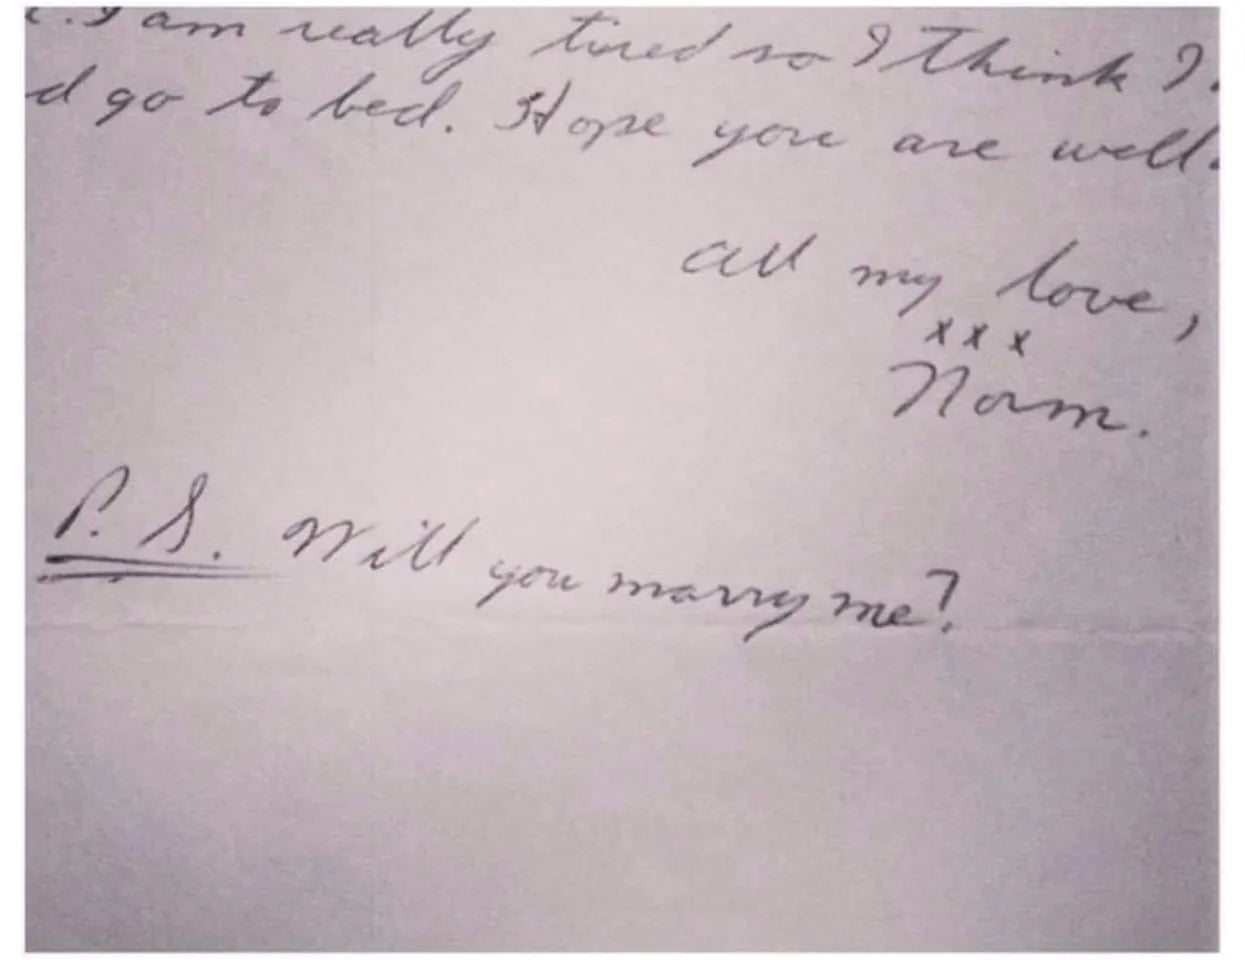 I am really tired so I think I
d go to bed. Hope you are well.
All my love,
xxx
Norm.
P.S. Will you marry me?